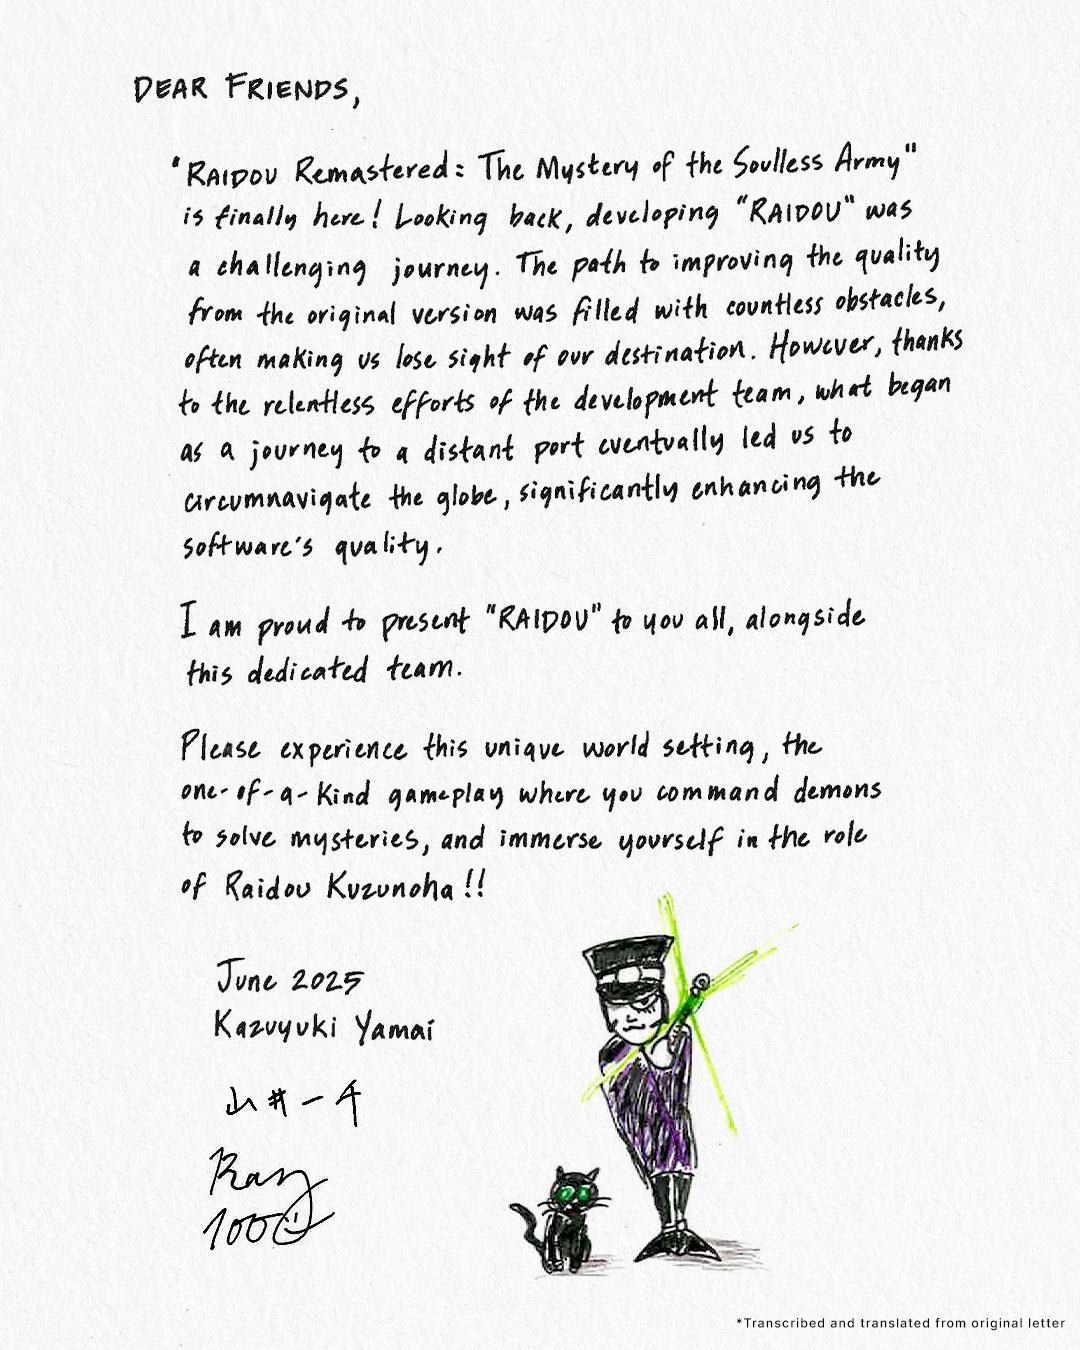 DEAR FRIENDS,
"RAIDOU Remastered: The Mystery of the Soulless Army"
is finally here! Looking back, developing "RAIDOU" was
a challenging journey. The path to improving the quality
from the original version was filled with countless obstacles,
often making us lose sight of our destination. However, thanks
to the relentless efforts of the development team, what began
as a journey to a distant port eventually led us to
circumnavigate the globe, significantly enhancing the
software's quality.
I am proud to present "RAIDOU" to you all, alongside
this dedicated team.
Please experience this unique world setting, the
one-of-a-kind gameplay where you command demons
to solve mysteries, and immerse yourself in the role
of Raidou Kuzunoha!!
June 2025
Kazuyuki Yamai
山井一千
1000
*Transcribed and translated from original letter